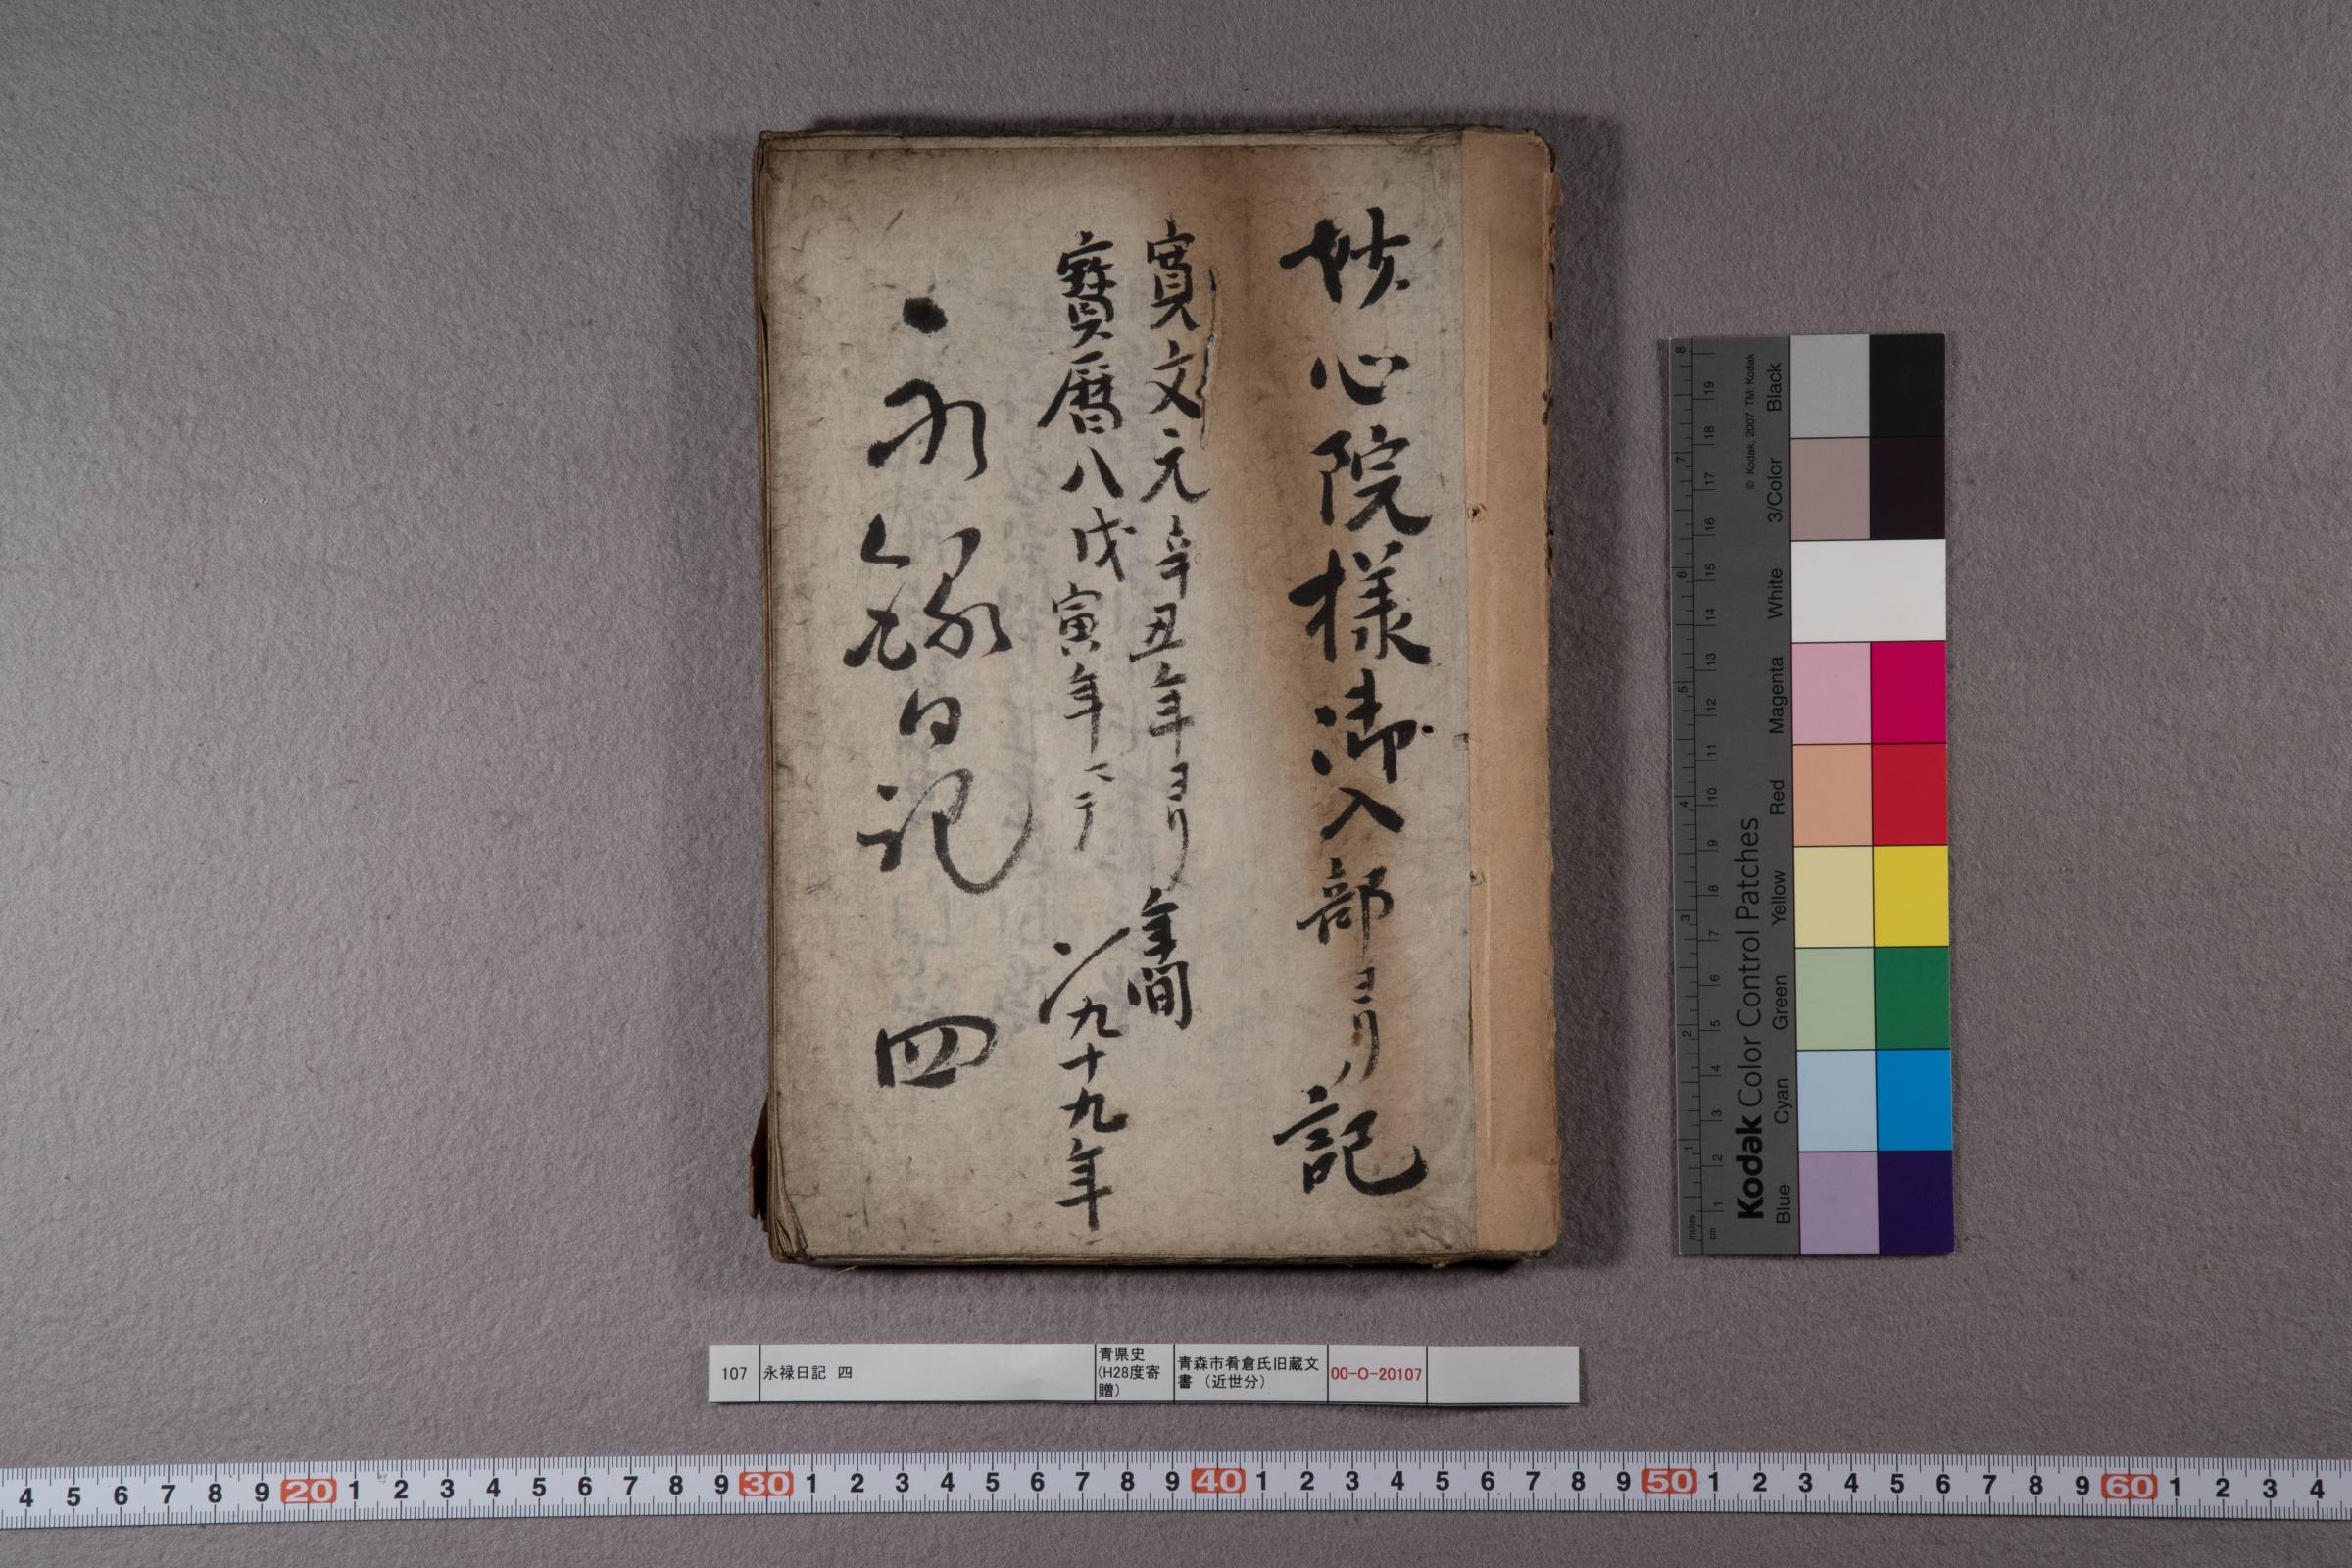 妙心院様御入部ヨリノ記
寛文元辛丑年ヨリ
寳暦八戊寅年ニテ
年間
九十九年
永禄日記 四
107
永禄日記 四
青県史
(H28度寄
贈)
青森市肴倉氏旧蔵文
書 (近世分)
00-O-20107
Kodak Color Control Patches
© Kodak, 2007 TM: Kodak
Blue Cyan Green Yellow Red Magenta White 3/Color Black
inches 1 2 3 4 5 6 7 8
cm 1 2 3 4 5 6 7 8 9 10 11 12 13 14 15 16 17 18 19
4 5 6 7 8 9 20 1 2 3 4 5 6 7 8 9 30 1 2 3 4 5 6 7 8 9 40 1 2 3 4 5 6 7 8 9 50 1 2 3 4 5 6 7 8 9 60 1 2 3 4